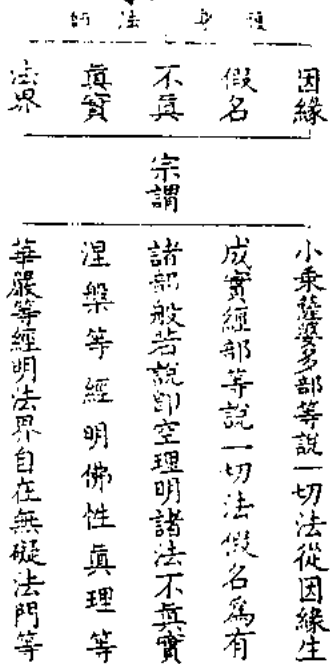 護身法師
因緣
假名
不眞
眞實
法界
宗謂
小乘薩婆多部等說一切法從因緣生
成實經部等說一切法假名爲有
諸部般若說卽空理明諸法不眞實
涅槃等經明佛性眞理等
華嚴等經明法界自在無礙法門等